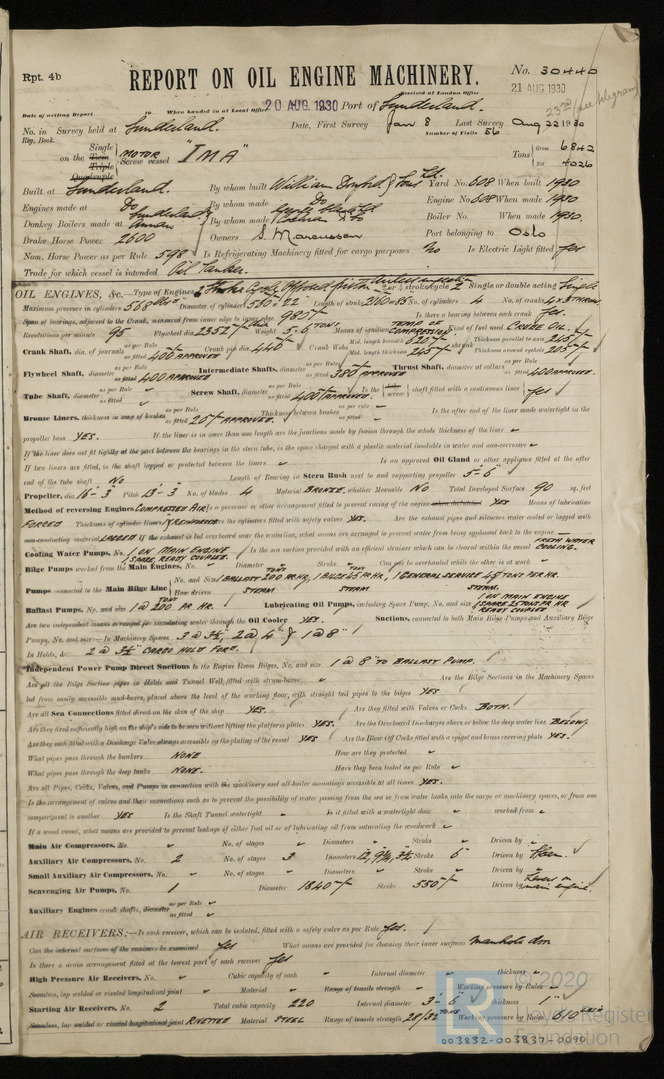 Rpt. 4b
REPORT ON OIL ENGINE MACHINERY.
No. 30440
Received at London Office
21 AUG 1930
Date of writing Report When handed in at Local Office 20 AUG. 1930 Port of Sunderland.
No. in Survey held at Sunderland. Date, First Survey Jan 8 Last Survey Aug 22 1930
Reg. Book. Number of Visits 56
on the Single Twin Triple Quadruple MOTOR Screw vessel "IMA" Tons Gross 6842 Net 4026
Built at Sunderland. By whom built William Doxford & Sons Ltd. Yard No. 608 When built 1930
Engines made at Do By whom made Do Engine No. 608 When made 1930
Donkey Boilers made at Sunderland Annan By whom made Boiler No. When made 1930.
Brake Horse Power 2600 Owners Port belonging to Oslo
Nom. Horse Power as per Rule 598 Is Refrigerating Machinery fitted for cargo purposes No Is Electric Light fitted Yes
Trade for which vessel is intended Oil Tanker.
OIL ENGINES, &c.—Type of Engines 2 Stroke Cycle Opposed piston 2 or 4 stroke cycle 2 Single or double acting Single
Maximum pressure in cylinders 568 lbs Diameter of cylinders 560-22" Length of stroke No. of cylinders 4 No. of cranks 4 x 3 THROW
Span of bearings, adjacent to the Crank, measured from inner edge to inner edge 980 Is there a bearing between each crank Yes.
Revolutions per minute 95 Flywheel dia. 2352 Weight 5.6 TONS. Means of ignition TEMP OF COMPRESSION Kind of fuel used CRUDE OIL.
Crank Shaft, dia. of journals as per Rule as fitted 400 APPROVED Crank pin dia. 440 Crank Webs Mid. length breadth 620 Mid. length thickness 245 shrunk Thickness parallel to axis 245 Thickness around eyehole 205
Flywheel Shaft, diameter as per Rule as fitted 400 APPROVED Intermediate Shafts, diameter as per Rule as fitted 380 APPROVED Thrust Shaft, diameter at collars as per Rule as fitted 400 APPROVED.
Tube Shaft, diameter as per Rule as fitted Screw Shaft, diameter as per Rule as fitted 400 APPROVED Is the tube screw shaft fitted with a continuous liner Yes
Bronze Liners, thickness in way of bushes as per Rule as fitted 20 APPROVED. Thickness between bushes as per rule as fitted Is the after end of the liner made watertight in the
propeller boss YES. If the liner is in more than one length are the junctions made by fusion through the whole thickness of the liner
If the liner does not fit tightly at the part between the bearings in the stern tube, is the space charged with a plastic material insoluble in water and non-corrosive
If two liners are fitted, is the shaft lapped or protected between the liners Is an approved Oil Gland or other appliance fitted at the after
end of the tube shaft NO Length of Bearing in Stern Bush next to and supporting propeller 5'-6"
Propeller, dia. 16'-3 Pitch 13'-3 No. of blades 4 Material BRONZE. whether Moveable NO Total Developed Surface 90 sq. feet
Method of reversing Engines COMPRESSED AIR Is a governor or other arrangement fitted to prevent racing of the engine when declutched YES Means of lubrication
FORCED Thickness of cylinder liners Are the cylinders fitted with safety valves YES. Are the exhaust pipes and silencers water cooled or lagged with
non-conducting material LAGGED If the exhaust is led overboard near the waterline, what means are arranged to prevent water from being syphoned back to the engine
Cooling Water Pumps, No. 1 ON MAIN ENGINE 1 SPARE READY COUPLED. Is the sea suction provided with an efficient strainer which can be cleared within the vessel FRESH WATER COOLING.
Bilge Pumps worked from the Main Engines, No. Diameter Stroke Can one be overhauled while the other is at work
Pumps connected to the Main Bilge Line No. and Size 1 BALLAST 200 TONS PR HR, 1 BILGE 45 TONS PR HR, 1 GENERAL SERVICE 45 TONS PER HR.
How driven STEAM STEAM STEAM.
Ballast Pumps, No. and size 1 @ 200 TONS PR HR. Lubricating Oil Pumps, including Spare Pump, No. and size 1 ON MAIN ENGINE 1 SPARE 25 TONS PR HR READY COUPLED
Are two independent means arranged for circulating water through the Oil Cooler YES. Suctions, connected to both Main Bilge Pumps and Auxiliary Bilge
Pumps, No. and size:—In Machinery Spaces 3 @ 3½", 2 @ 4" & 1 @ 8"
In Holds, &c. 2 @ 3½" CARGO HOLD FORD.
Independent Power Pump Direct Suctions to the Engine Room Bilges, No. and size 1 @ 8" TO BALLAST PUMP.
Are all the Bilge Suction pipes in Holds and Tunnel Well fitted with strum-boxes Are the Bilge Suctions in the Machinery Spaces
led from easily accessible mud-boxes, placed above the level of the working floor, with straight tail pipes to the bilges YES
Are all Sea Connections fitted direct on the skin of the ship YES. Are they fitted with Valves or Cocks BOTH.
Are they fixed sufficiently high on the ship's side to be seen without lifting the platform plates YES. Are the Overboard Discharges above or below the deep water line BELOW.
Are they each fitted with a Discharge Valve always accessible on the plating of the vessel YES Are the Blow Off Cocks fitted with a spigot and brass covering plate YES.
What pipes pass through the bunkers NONE How are they protected
What pipes pass through the deep tanks NONE. Have they been tested as per Rule
Are all Pipes, Cocks, Valves, and Pumps in connection with the machinery and all boiler mountings accessible at all times YES.
Is the arrangement of valves and their connections such as to prevent the possibility of water passing from the sea or from water tanks into the cargo or machinery spaces, or from one
compartment to another YES Is the Shaft Tunnel watertight Is it fitted with a watertight door worked from
If a wood vessel, what means are provided to prevent leakage of either fuel oil or of lubricating oil from saturating the woodwork
Main Air Compressors, No. No. of stages Diameters Stroke Driven by
Auxiliary Air Compressors, No. 2 No. of stages 3 Diameters 12, 9¾, 3½ Stroke 6" Driven by Steam.
Small Auxiliary Air Compressors, No. No. of stages Diameters Stroke Driven by
Scavenging Air Pumps, No. 1 Diameter 1840 Stroke 550 Driven by Levers on main engine.
Auxiliary Engines crank shafts, diameter as per Rule as fitted
AIR RECEIVERS:—Is each receiver, which can be isolated, fitted with a safety valve as per Rule Yes.
Can the internal surfaces of the receivers be examined Yes What means are provided for cleaning their inner surfaces Manhole door
Is there a drain arrangement fitted at the lowest part of each receiver Yes
High Pressure Air Receivers, No. Cubic capacity of each Internal diameter thickness
Seamless, lap welded or riveted longitudinal joint Material Range of tensile strength Working pressure by Rules
Starting Air Receivers, No. 2 Total cubic capacity 220 Internal diameter 3'-6" thickness 1"
Seamless, lap welded or riveted longitudinal joint RIVETTED Material STEEL Range of tensile strength 28/32 TONS Working pressure by Rules 610
© 2020
Lloyd's Register
Foundation
003832-003837-0090